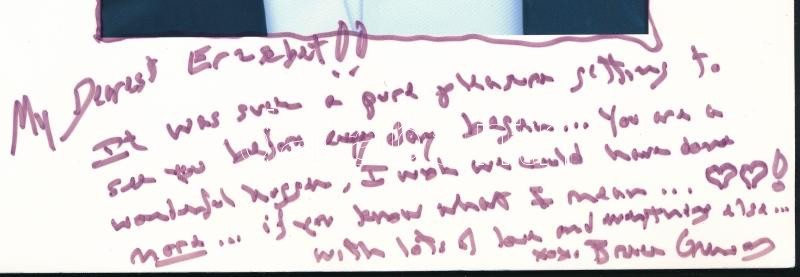 My Dearest Erzsebet!!
It was such a pure pleasure getting to
see you before every day began... You are a
wonderful hugger, I wish we could have done
more... if you know what I mean... ♡♡!
with lots of love and everything else...
xoxo. Bruce